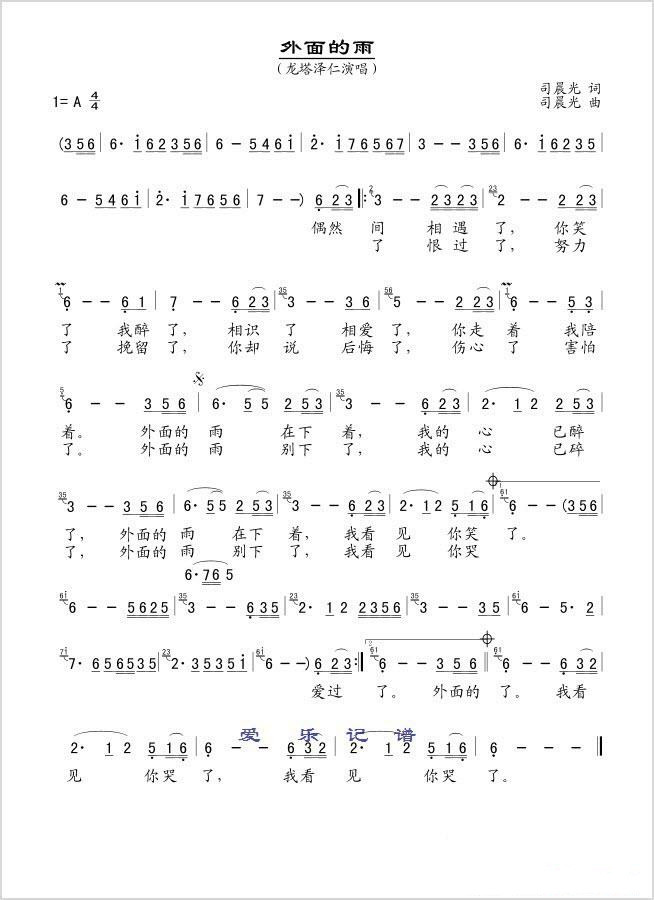 外面的雨
(龙塔泽仁演唱)
1= A 4/4
司晨光 词
司晨光 曲
(3 5 6 | 6· i 6 2 3 5 6 | 6 – 5 4 6 i | 2· i 7 6 5 6 7 | 3 – – 3 5 6 | 6· i 6 2 3 5
6 – 5 4 6 i | 2· i 7 6 5 6 | 7 – –) 6 2 3 |: 3 – – 2 3 2 3 | 2 – 2 2 3 |
偶然 间 相 遇 了, 你笑
了 恨 过 了, 努力
6 – – 6 1 | 7 – – 6 2 3 | 3 – – 3 | 5 – – 2 2 3 | 6 – – 5 3 |
了 我醉 了, 相识 了 相爱 了, 你走 着 我陪
了 挽留 了, 你却 说 后悔 了, 伤心 了 害怕
6 – – 3 5 6 | 6· 5 5 2 5 3 | 3 – – 6 2 3 | 2· 1 2 2 5 3 |
着。 外面的 雨 在下 着, 我的 心 已醉
了。 外面的 雨 别下 了, 我的 心 已碎
3 – – 3 5 6 | 6· 5 5 2 5 3 | 3 – – 2 3 | 2· 1 2 5 1 6 | 6 – – (3 5 6
了, 外面的 雨 在下 着, 我看 见 你笑 了。
了, 外面的 雨 别下 了, 我看 见 你哭
6· 7 6 5
6 – – 5 6 2 5 | 3 – – 6 3 5 | 2· 1 2 2 3 5 6 | 3 – – 3 5 | 6 – 5· 2
7· 6 5 6 5 3 5 | 2· 3 5 3 5 i | 6 – –) 6 2 3 :| 6 – – 3 5 6 || 6 – – 6 3 2 |
爱过 了。 外面的 了。 我看
爱 乐 记 谱
2· 1 2 5 1 6 | 6 – – 6 3 2 | 2· 1 2 6 1 6 | 6 – – – ||
见 你哭 了, 我看 见 你哭 了。